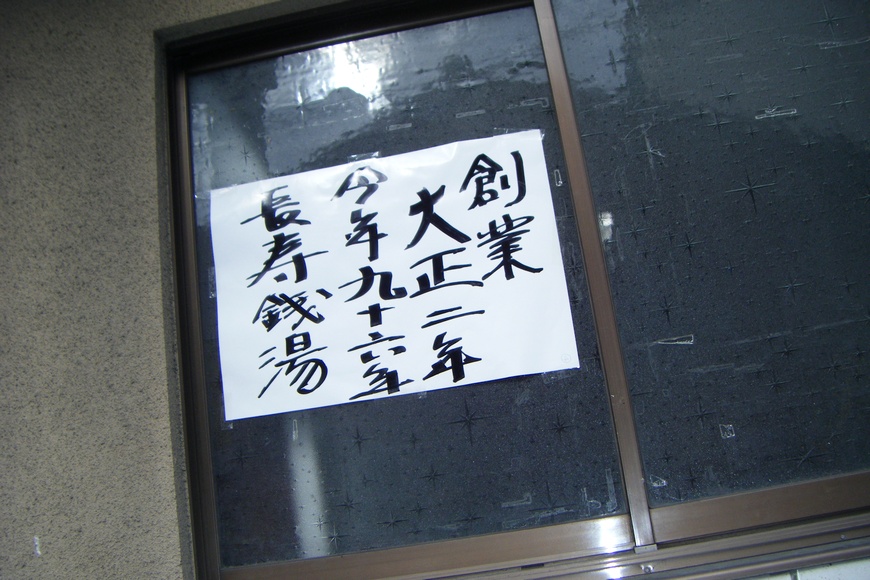 創業
大正二年
今年九十六年
長寿銭湯